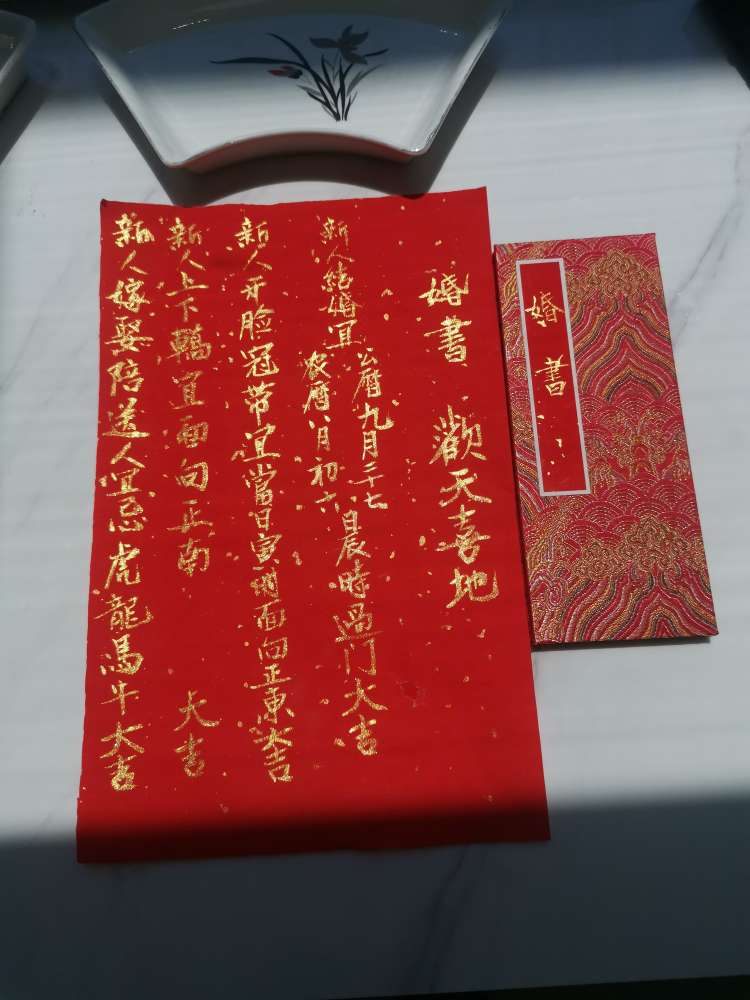 婚書 歡天喜地
新人结婚宜
公曆九月二十七
农曆八月初六
日晨時過门大吉
新人开脸冠带宜當日寅时面向正東大吉
新人上下轎宜面向正南 大吉
新人嫁娶陪送人宜忌虎龍馬牛大吉
婚書